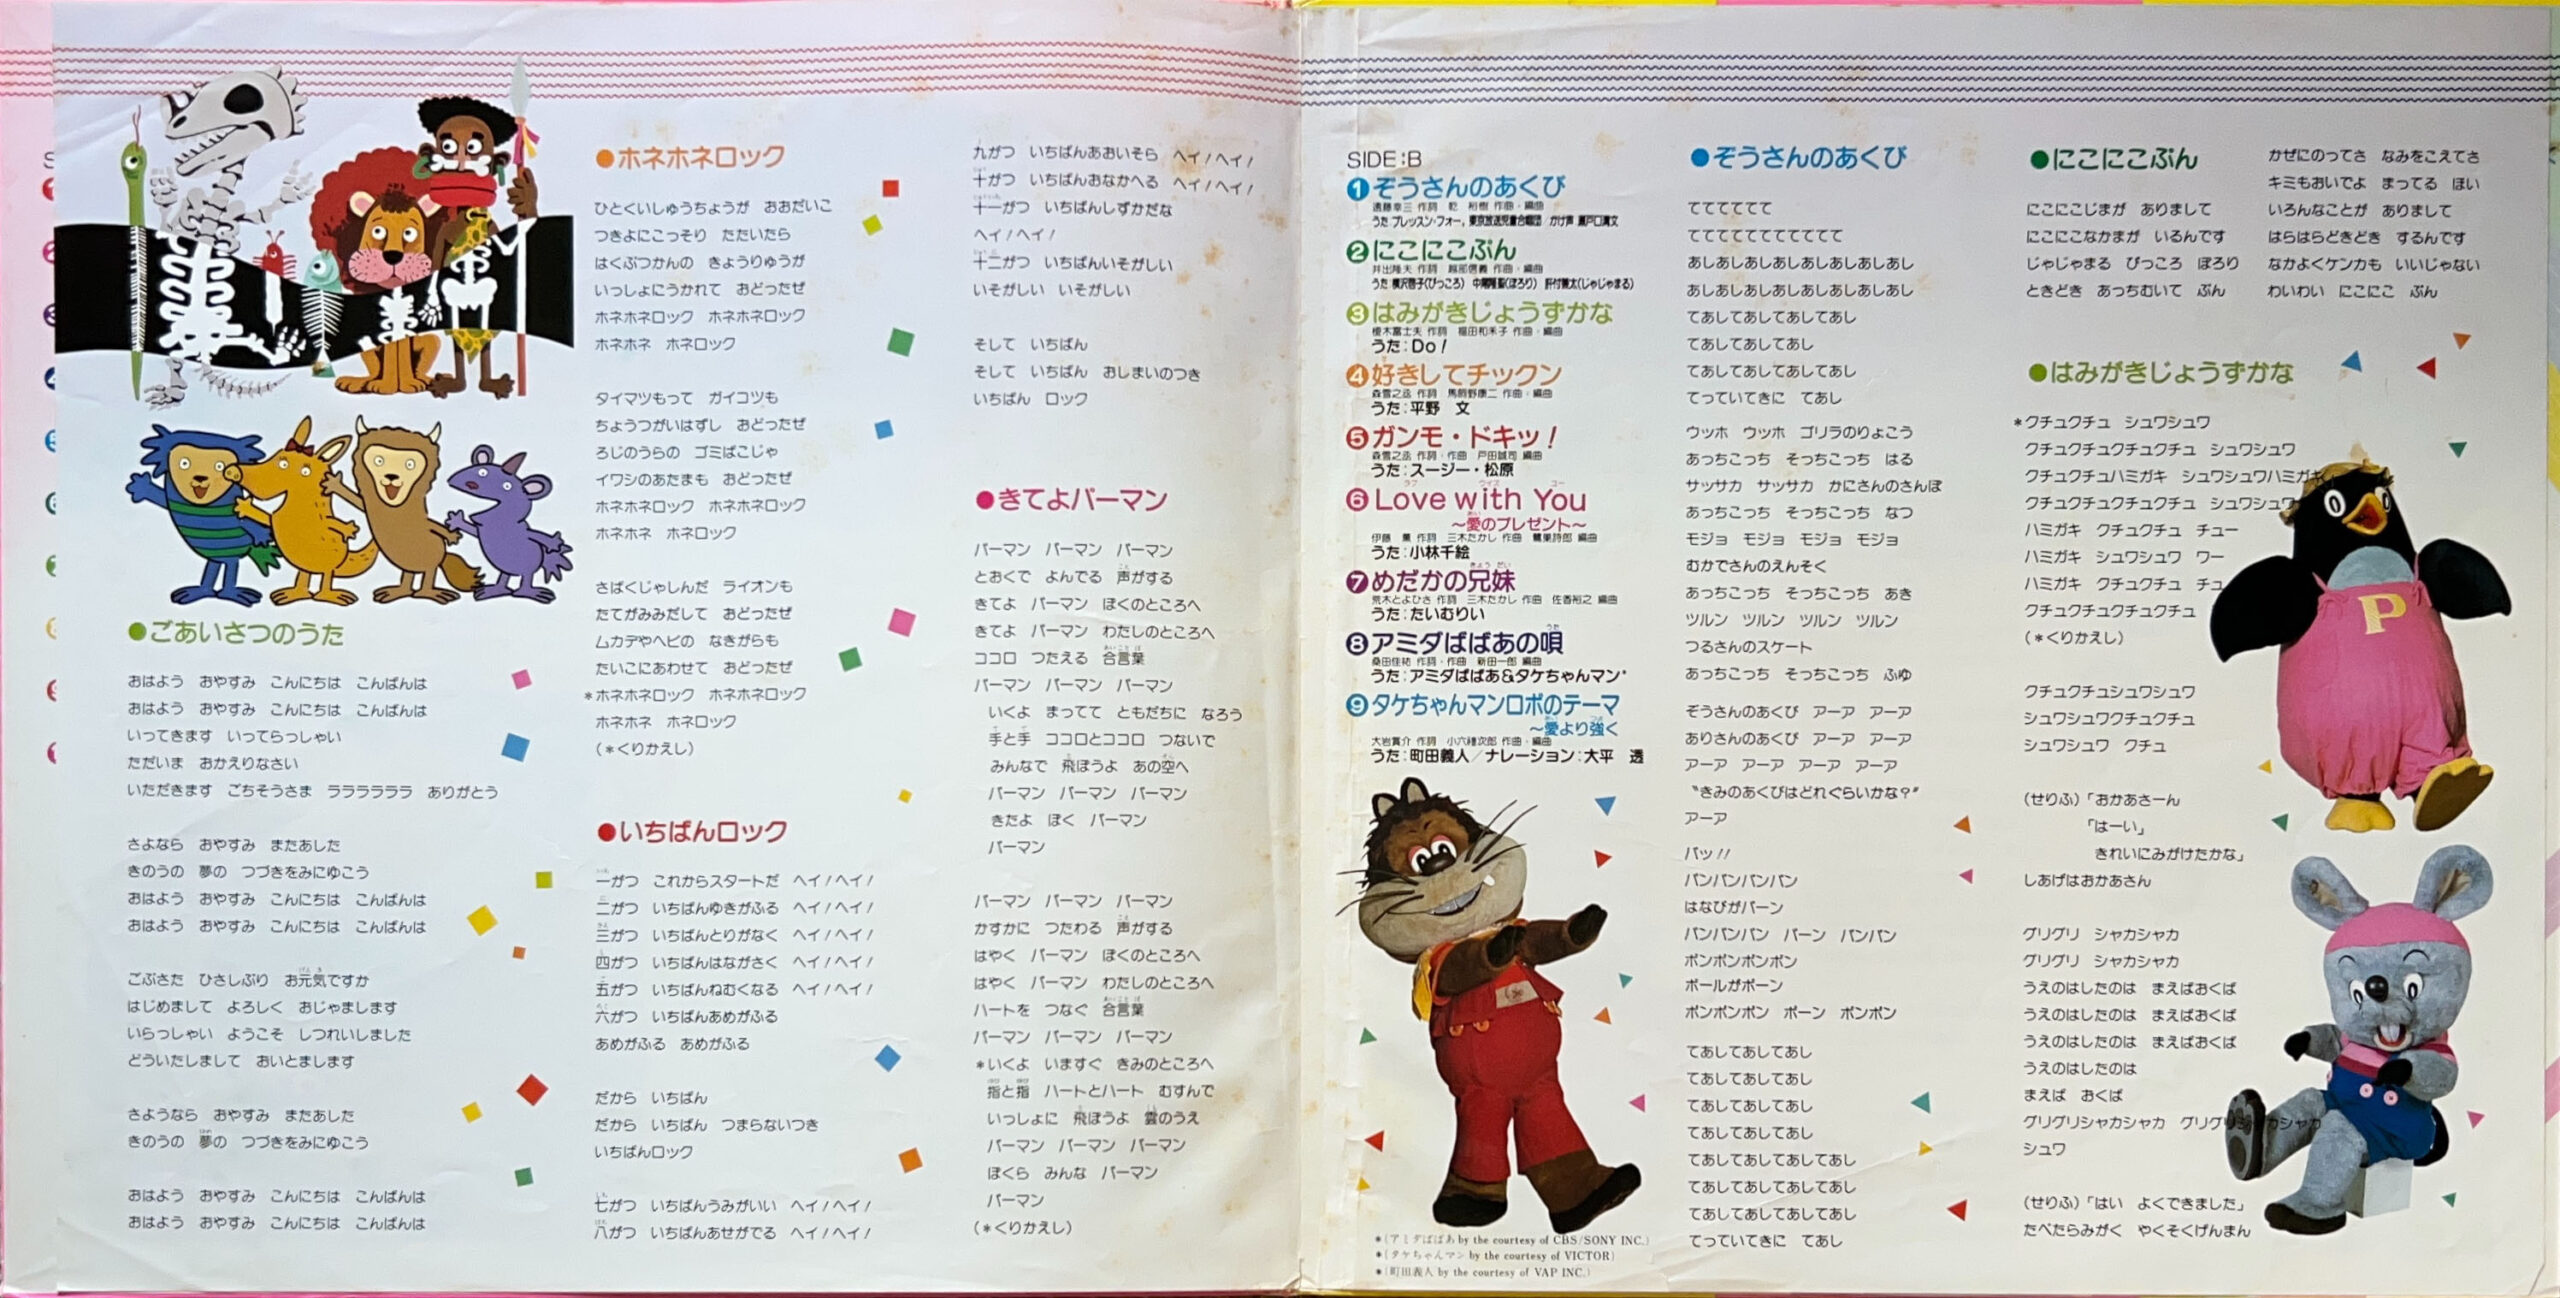 ●ホネホネロック
ひとくいしゅうちょうが　おおだいこ
つきよにこっそり　たたいたら
はくぶつかんの　きょうりゅうが
いっしょにうかれて　おどったぜ
ホネホネロック　ホネホネロック
ホネホネ　ホネロック
タイマツもって　ガイコツも
ちょうつがいはずし　おどったぜ
ろじのうらの　ゴミばこじゃ
イワシのあたまも　おどったぜ
ホネホネロック　ホネホネロック
ホネホネ　ホネロック
さばくじゃしんだ　ライオンも
たてがみみだして　おどったぜ
ムカデやヘビの　なきがらも
たいこにあわせて　おどったぜ
*ホネホネロック　ホネホネロック
ホネホネ　ホネロック
(*くりかえし)
●ごあいさつのうた
おはよう　おやすみ　こんにちは　こんばんは
おはよう　おやすみ　こんにちは　こんばんは
いってきます　いってらっしゃい
ただいま　おかえりなさい
いただきます　ごちそうさま　ララララララ　ありがとう
さよなら　おやすみ　またあした
きのうの　夢の　つづきをみにゆこう
おはよう　おやすみ　こんにちは　こんばんは
おはよう　おやすみ　こんにちは　こんばんは
ごぶさた　ひさしぶり　お元気ですか
はじめまして　よろしく　おじゃまします
いらっしゃい　ようこそ　しつれいしました
どういたしまして　おいとまします
さようなら　おやすみ　またあした
きのうの　夢の　つづきをみにゆこう
おはよう　おやすみ　こんにちは　こんばんは
おはよう　おやすみ　こんにちは　こんばんは
●いちばんロック
一がつ　これからスタートだ　ヘイ!ヘイ!
二がつ　いちばんゆきがふる　ヘイ!ヘイ!
三がつ　いちばんとりがなく　ヘイ!ヘイ!
四がつ　いちばんはながさく　ヘイ!ヘイ!
五がつ　いちばんねむくなる　ヘイ!ヘイ!
六がつ　いちばんあめがふる
あめがふる　あめがふる
だから　いちばん
だから　いちばん　つまらないつき
いちばんロック
七がつ　いちばんうみがいい　ヘイ!ヘイ!
八がつ　いちばんあせがでる　ヘイ!ヘイ!
九がつ　いちばんあおいそら　ヘイ!ヘイ!
十がつ　いちばんおなかへる　ヘイ!ヘイ!
十一がつ　いちばんしずかだな
ヘイ!ヘイ!
十二がつ　いちばんいそがしい
いそがしい　いそがしい
そして　いちばん
そして　いちばん　おしまいのつき
いちばん　ロック
●きてよパーマン
パーマン　パーマン　パーマン
とおくで　よんでる　声がする
きてよ　パーマン　ぼくのところへ
きてよ　パーマン　わたしのところへ
ココロ　つたえる　合言葉
パーマン　パーマン　パーマン
いくよ　まってて　ともだちに　なろう
手と手　ココロとココロ　つないで
みんなで　飛ぼうよ　あの空へ
パーマン　パーマン　パーマン
きたよ　ぼく　パーマン
パーマン
パーマン　パーマン　パーマン
かすかに　つたわる　声がする
はやく　パーマン　ぼくのところへ
はやく　パーマン　わたしのところへ
ハートを　つなぐ　合言葉
パーマン　パーマン　パーマン
*いくよ　いますぐ　きみのところへ
指と指　ハートとハート　むすんで
いっしょに　飛ぼうよ　雲のうえ
パーマン　パーマン　パーマン
ぼくら　みんな　パーマン
パーマン
(*くりかえし)
SIDE:B
❶ぞうさんのあくび
遠藤幸三 作詞　乾　裕樹 作曲・編曲
うた ブレッスン・フォー，東京放送児童合唱団　かけ声 瀬戸口清文
❷にこにこぷん
井出隆夫 作詞　越部信義 作曲・編曲
うた 横沢啓子(ぴっころ)　中尾隆聖(ぽろり)　肝付兼太(じゃじゃまる)
❸はみがきじょうずかな
榎木冨士夫 作詞　福田和禾子 作曲・編曲
うた：Do!
❹好きしてチックン
森雪之丞 作詞　馬飼野康二 作曲・編曲
うた：平野　文
❺ガンモ・ドキッ！
森雪之丞 作詞・作曲　戸田誠司 編曲
うた：スージー・松原
❻Love with You
～愛のプレゼント～
伊藤　薫 作詞　三木たかし 作曲　鷺巣詩郎 編曲
うた：小林千絵
❼めだかの兄妹
荒木とよひさ 作詞　三木たかし 作曲　佐香裕之 編曲
うた：たいむりい
❽アミダばばあの唄
桑田佳祐 作詞・作曲　新田一郎 編曲
うた：アミダばばあ&タケちゃんマン*
❾タケちゃんマンロボのテーマ
～愛より強く
大岩賞介 作詞　小六禮次郎 作曲・編曲
うた：町田義人／ナレーション：大平　透
*(アミダばばあ by the courtesy of CBS/SONY INC.)
*(タケちゃんマン by the courtesy of VICTOR)
*(町田義人 by the courtesy of VAP INC.)
●ぞうさんのあくび
てててててて
ててててててててててて
あしあしあしあしあしあしあしあし
あしあしあしあしあしあしあしあし
てあしてあしてあしてあし
てあしてあしてあし
てあしてあしてあしてあし
てっていてきに　てあし
ウッホ　ウッホ　ゴリラのりょこう
あっちこっち　そっちこっち　はる
サッサカ　サッサカ　かにさんのさんぽ
あっちこっち　そっちこっち　なつ
モジョ　モジョ　モジョ　モジョ
むかでさんのえんそく
あっちこっち　そっちこっち　あき
ツルン　ツルン　ツルン　ツルン
つるさんのスケート
あっちこっち　そっちこっち　ふゆ
ぞうさんのあくび　アーア　アーア
ありさんのあくび　アーア　アーア
アーア　アーア　アーア　アーア
“きみのあくびはどれぐらいかな?”
アーア
パッ!!
パンパンパンパン
はなびがパーン
パンパンパン　パーン　パンパン
ポンポンポンポン
ボールがポーン
ポンポンポン　ポーン　ポンポン
てあしてあしてあし
てあしてあしてあし
てあしてあしてあし
てあしてあしてあし
てあしてあしてあしてあし
てあしてあしてあしてあし
てあしてあしてあしてあし
てっていてきに　てあし
●にこにこぷん
にこにこじまが　ありまして
にこにこなかまが　いるんです
じゃじゃまる　ぴっころ　ぽろり
ときどき　あっちむいて　ぷん
かぜにのってさ　なみをこえてさ
キミもおいでよ　まってる　ほい
いろんなことが　ありまして
はらはらどきどき　するんです
なかよくケンカも　いいじゃない
わいわい　にこにこ　ぷん
●はみがきじょうずかな
*クチュクチュ　シュワシュワ
クチュクチュクチュクチュ　シュワシュワ
クチュクチュハミガキ　シュワシュワハミガキ
クチュクチュクチュクチュ　シュワシュワ
ハミガキ　クチュクチュ　チュー
ハミガキ　シュワシュワ　ワー
ハミガキ　クチュクチュ　チュ
クチュクチュクチュクチュ
(*くりかえし)
クチュクチュシュワシュワ
シュワシュワクチュクチュ
シュワシュワ　クチュ
(せりふ)「おかあさーん
「はーい」
きれいにみがけたかな」
しあげはおかあさん
グリグリ　シャカシャカ
グリグリ　シャカシャカ
うえのはしたのは　まえばおくば
うえのはしたのは　まえばおくば
うえのはしたのは　まえばおくば
うえのはしたのは
まえば　おくば
グリグリシャカシャカ　グリグリシャカシャカ
シュワ
(せりふ)「はい　よくできました」
たべたらみがく　やくそくげんまん
P